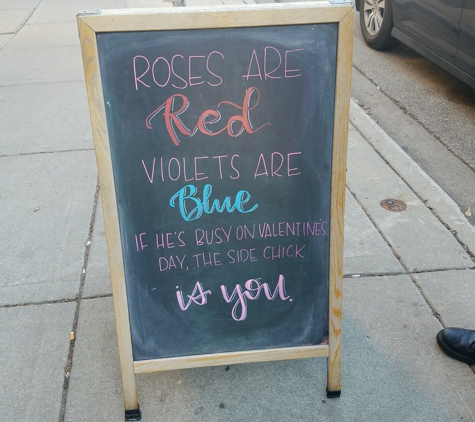 ROSES ARE
Red
VIOLETS ARE
Blue
IF HE'S BUSY ON VALENTINE'S
DAY, THE SIDE CHICK
is you.